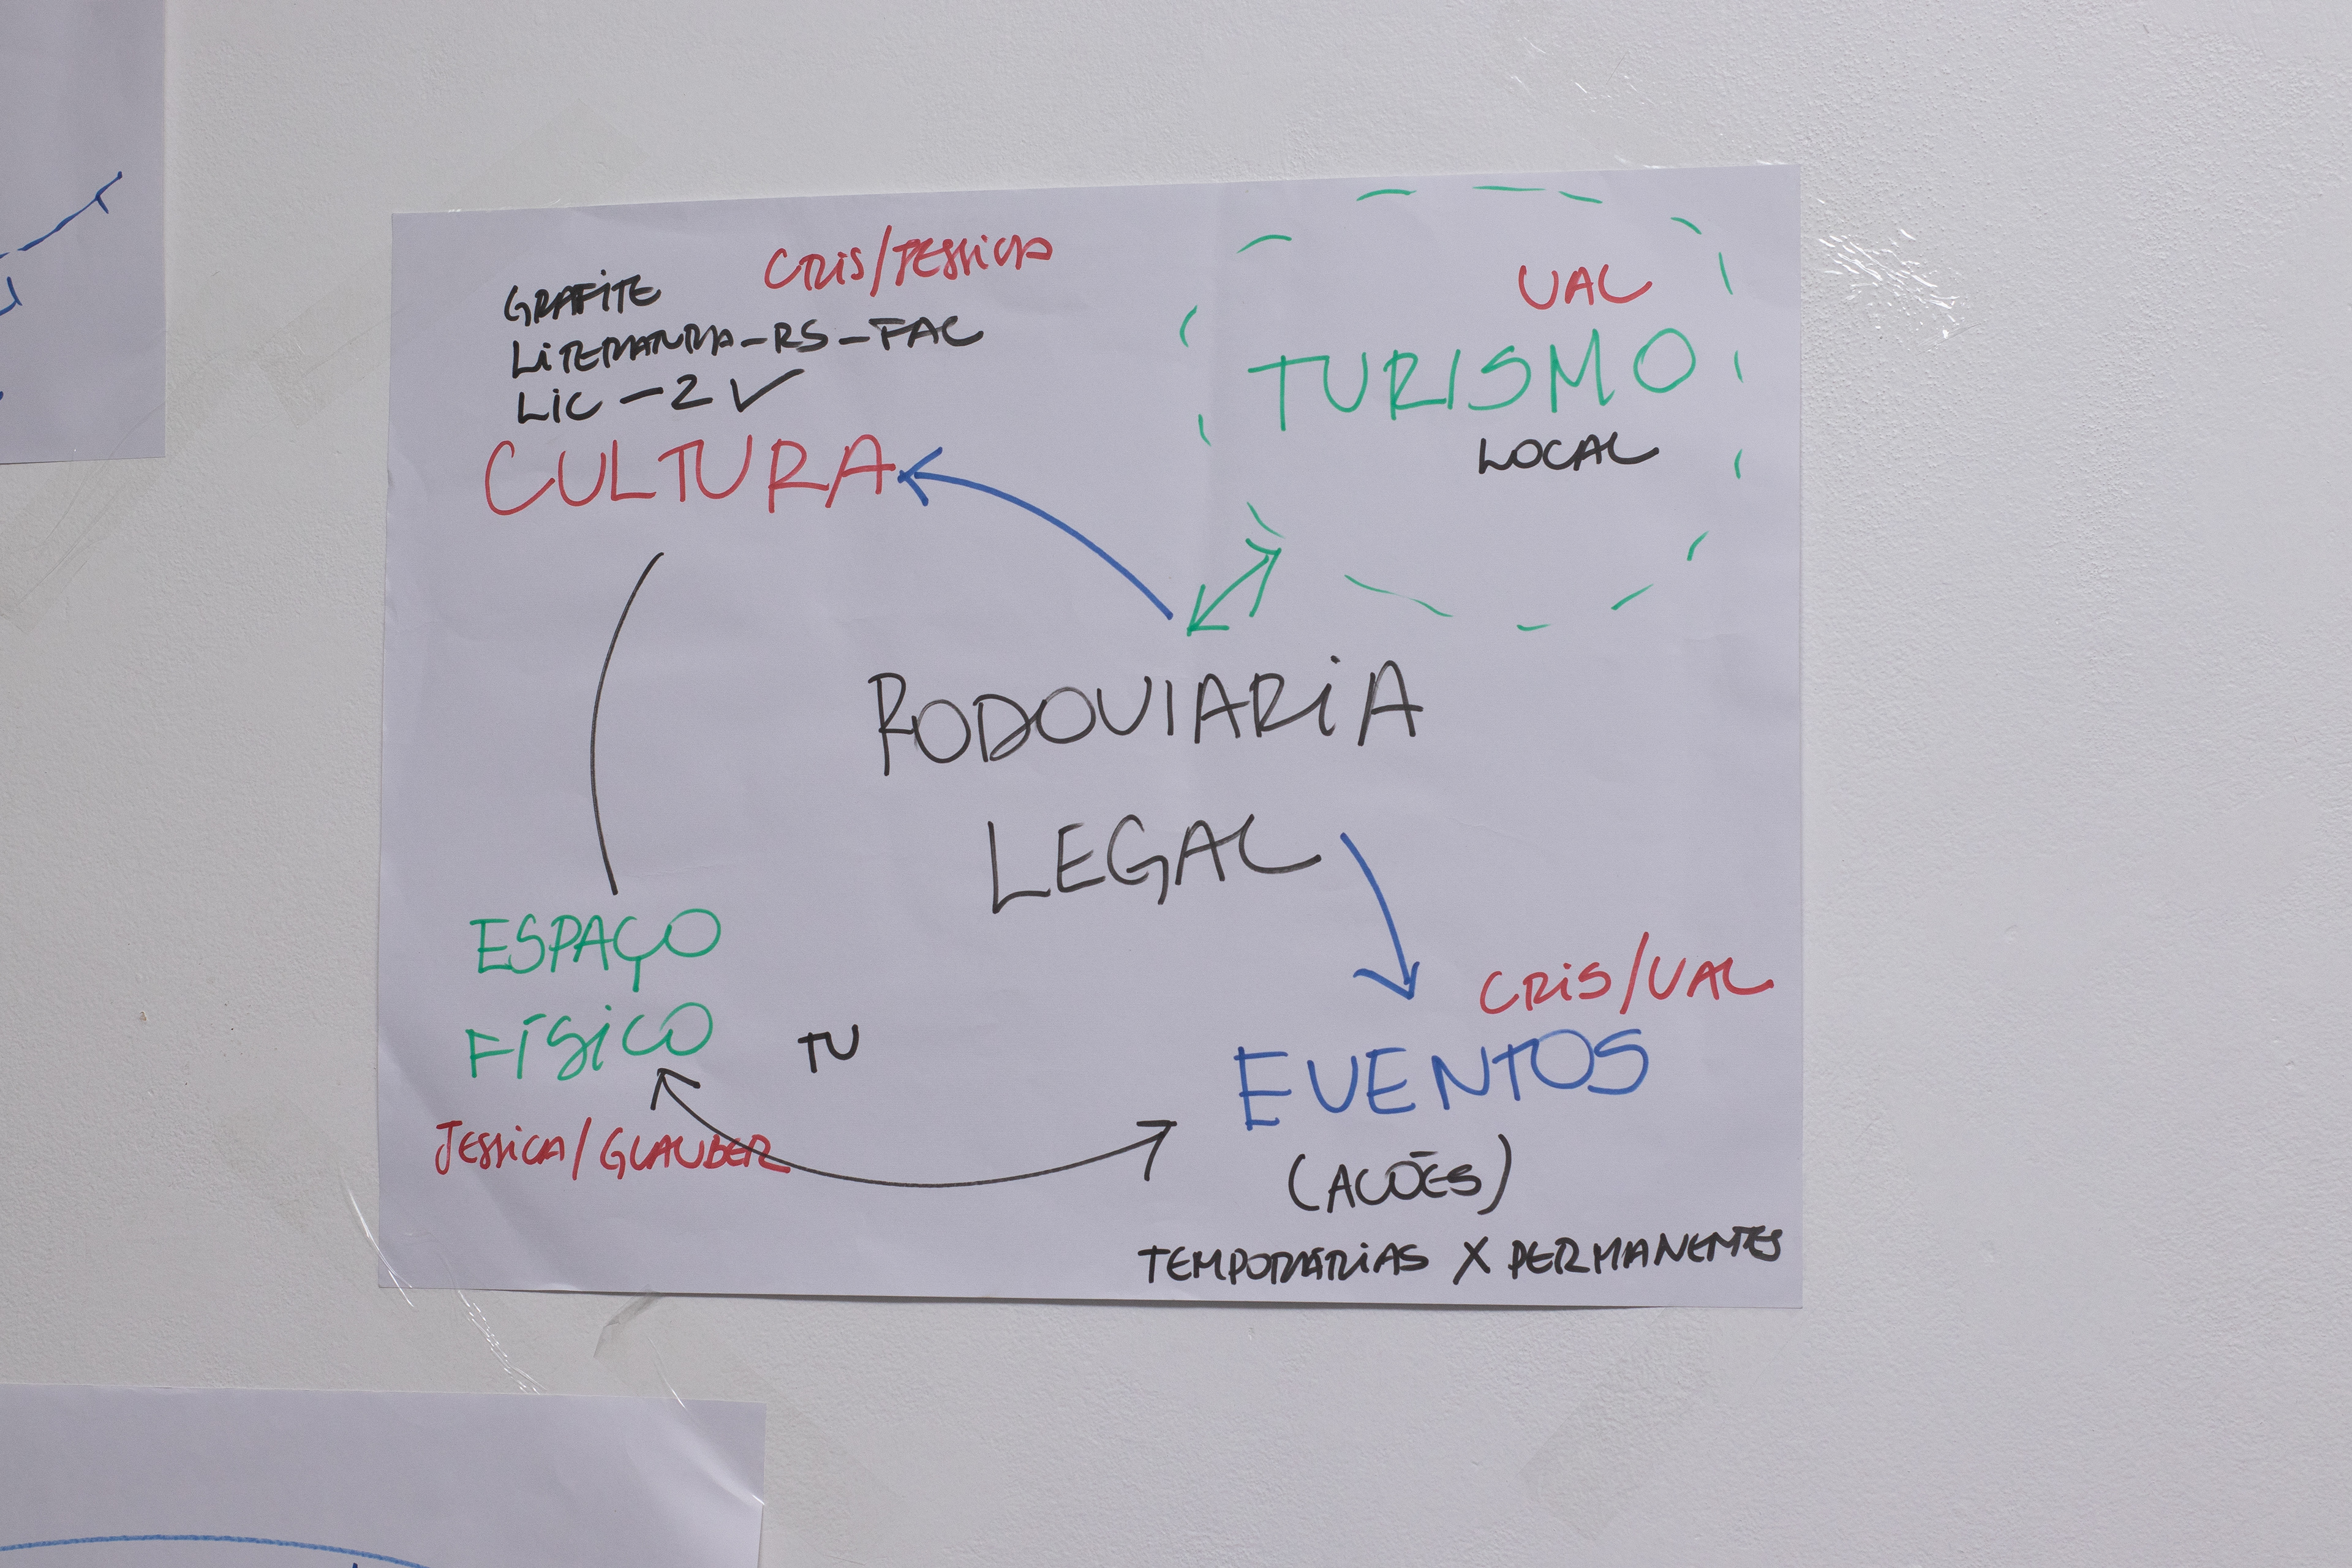 CRIS/JESSICA
GRAFITE
LITERATURA-RS-FAC
LIC-2 ✓
CULTURA
VAL
TURISMO
LOCAL
RODOVIARIA
LEGAL
ESPAÇO
FÍSICO
TU
JESSICA/GLAUBER
CRIS/VAL
EVENTOS
(ACÕES)
TEMPORÁRIAS X PERMANENTES